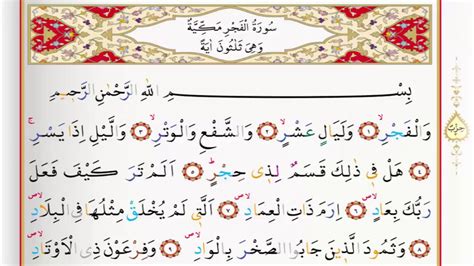 سُورَةُ الْفَجْرِ مَكِّيَّةٌ
وَهِيَ ثَلٰثُونَ اٰيَةً
بِسْمِ اللّٰهِ الرَّحْمٰنِ الرَّحٖيمِ
وَالْفَجْرِۙ ﴿١﴾ وَلَيَالٍ عَشْرٍۙ ﴿٢﴾ وَالشَّفْعِ وَالْوَتْرِۙ ﴿٣﴾ وَالَّيْلِ اِذَا يَسْرِۚ
﴿٤﴾ هَلْ فٖي ذٰلِكَ قَسَمٌ لِذٖي حِجْرٍؕ ﴿٥﴾ اَلَمْ تَرَ كَيْفَ فَعَلَ
رَبُّكَ بِعَادٍۙ ﴿٦﴾ اِرَمَ ذَاتِ الْعِمَادِۙ ﴿٧﴾ اَلَّتٖي لَمْ يُخْلَقْ مِثْلُهَا فِي الْبِلَادِۙ
﴿٨﴾ وَثَمُودَ الَّذٖينَ جَابُوا الصَّخْرَ بِالْوَادِۙ ﴿٩﴾ وَفِرْعَوْنَ ذِي الْاَوْتَادِۙ